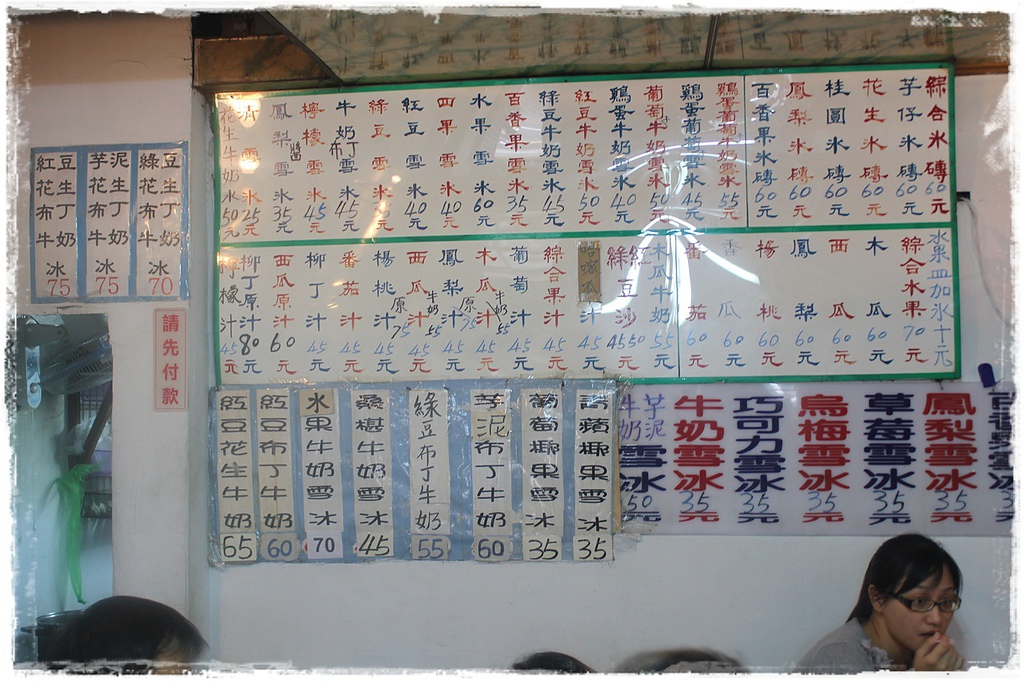 綜合氷磚60元
芋仔氷磚60元
花生氷磚60元
桂圓氷磚60元
鳳梨氷磚60元
百香果氷磚60元
鷄蛋葡萄牛奶雪氷55元
鷄蛋葡萄雪氷45元
葡萄牛奶雪氷50元
鷄蛋牛奶雪氷40元
紅豆牛奶雪氷50元
綠豆牛奶雪氷45元
百香果雪氷35元
水果雪氷60元
四果雪氷40元
紅豆雪氷40元
綠豆雪氷45元
牛奶布丁雪氷45元
檸檬雪氷45元
鳳梨醬雪氷35元
清雪氷25元
花生牛奶氷50元
水果皿加氷十元
綜合水果70元
木瓜60元
西瓜60元
鳳梨60元
楊桃60元
香瓜60元
番茄60元
木瓜牛奶55元
紅綠豆沙4550元
汁45元
綜合果汁45元
葡萄汁45元
木瓜汁牛奶5545元
鳳梨汁原7545元
西瓜汁牛奶5545元
楊桃汁原7545元
番茄汁45元
柳丁汁45元
西瓜原汁60元
柳丁原汁80元
檸檬汁45元
紅豆花生布丁牛奶冰75
芋泥花生布丁牛奶冰75
綠豆花生布丁牛奶冰70
請先付款
紅豆花生牛奶65
紅豆布丁牛奶60
水果牛奶雪冰70
桑椹牛奶雪冰45
綠豆布丁牛奶55
芋泥布丁牛奶60
葡萄椰果雪冰35
青蘋椰果雪冰35
芋泥牛奶雪冰50元
牛奶雪冰35元
巧可力雪冰35元
烏梅雪冰35元
草莓雪冰35元
鳳梨雪冰35元